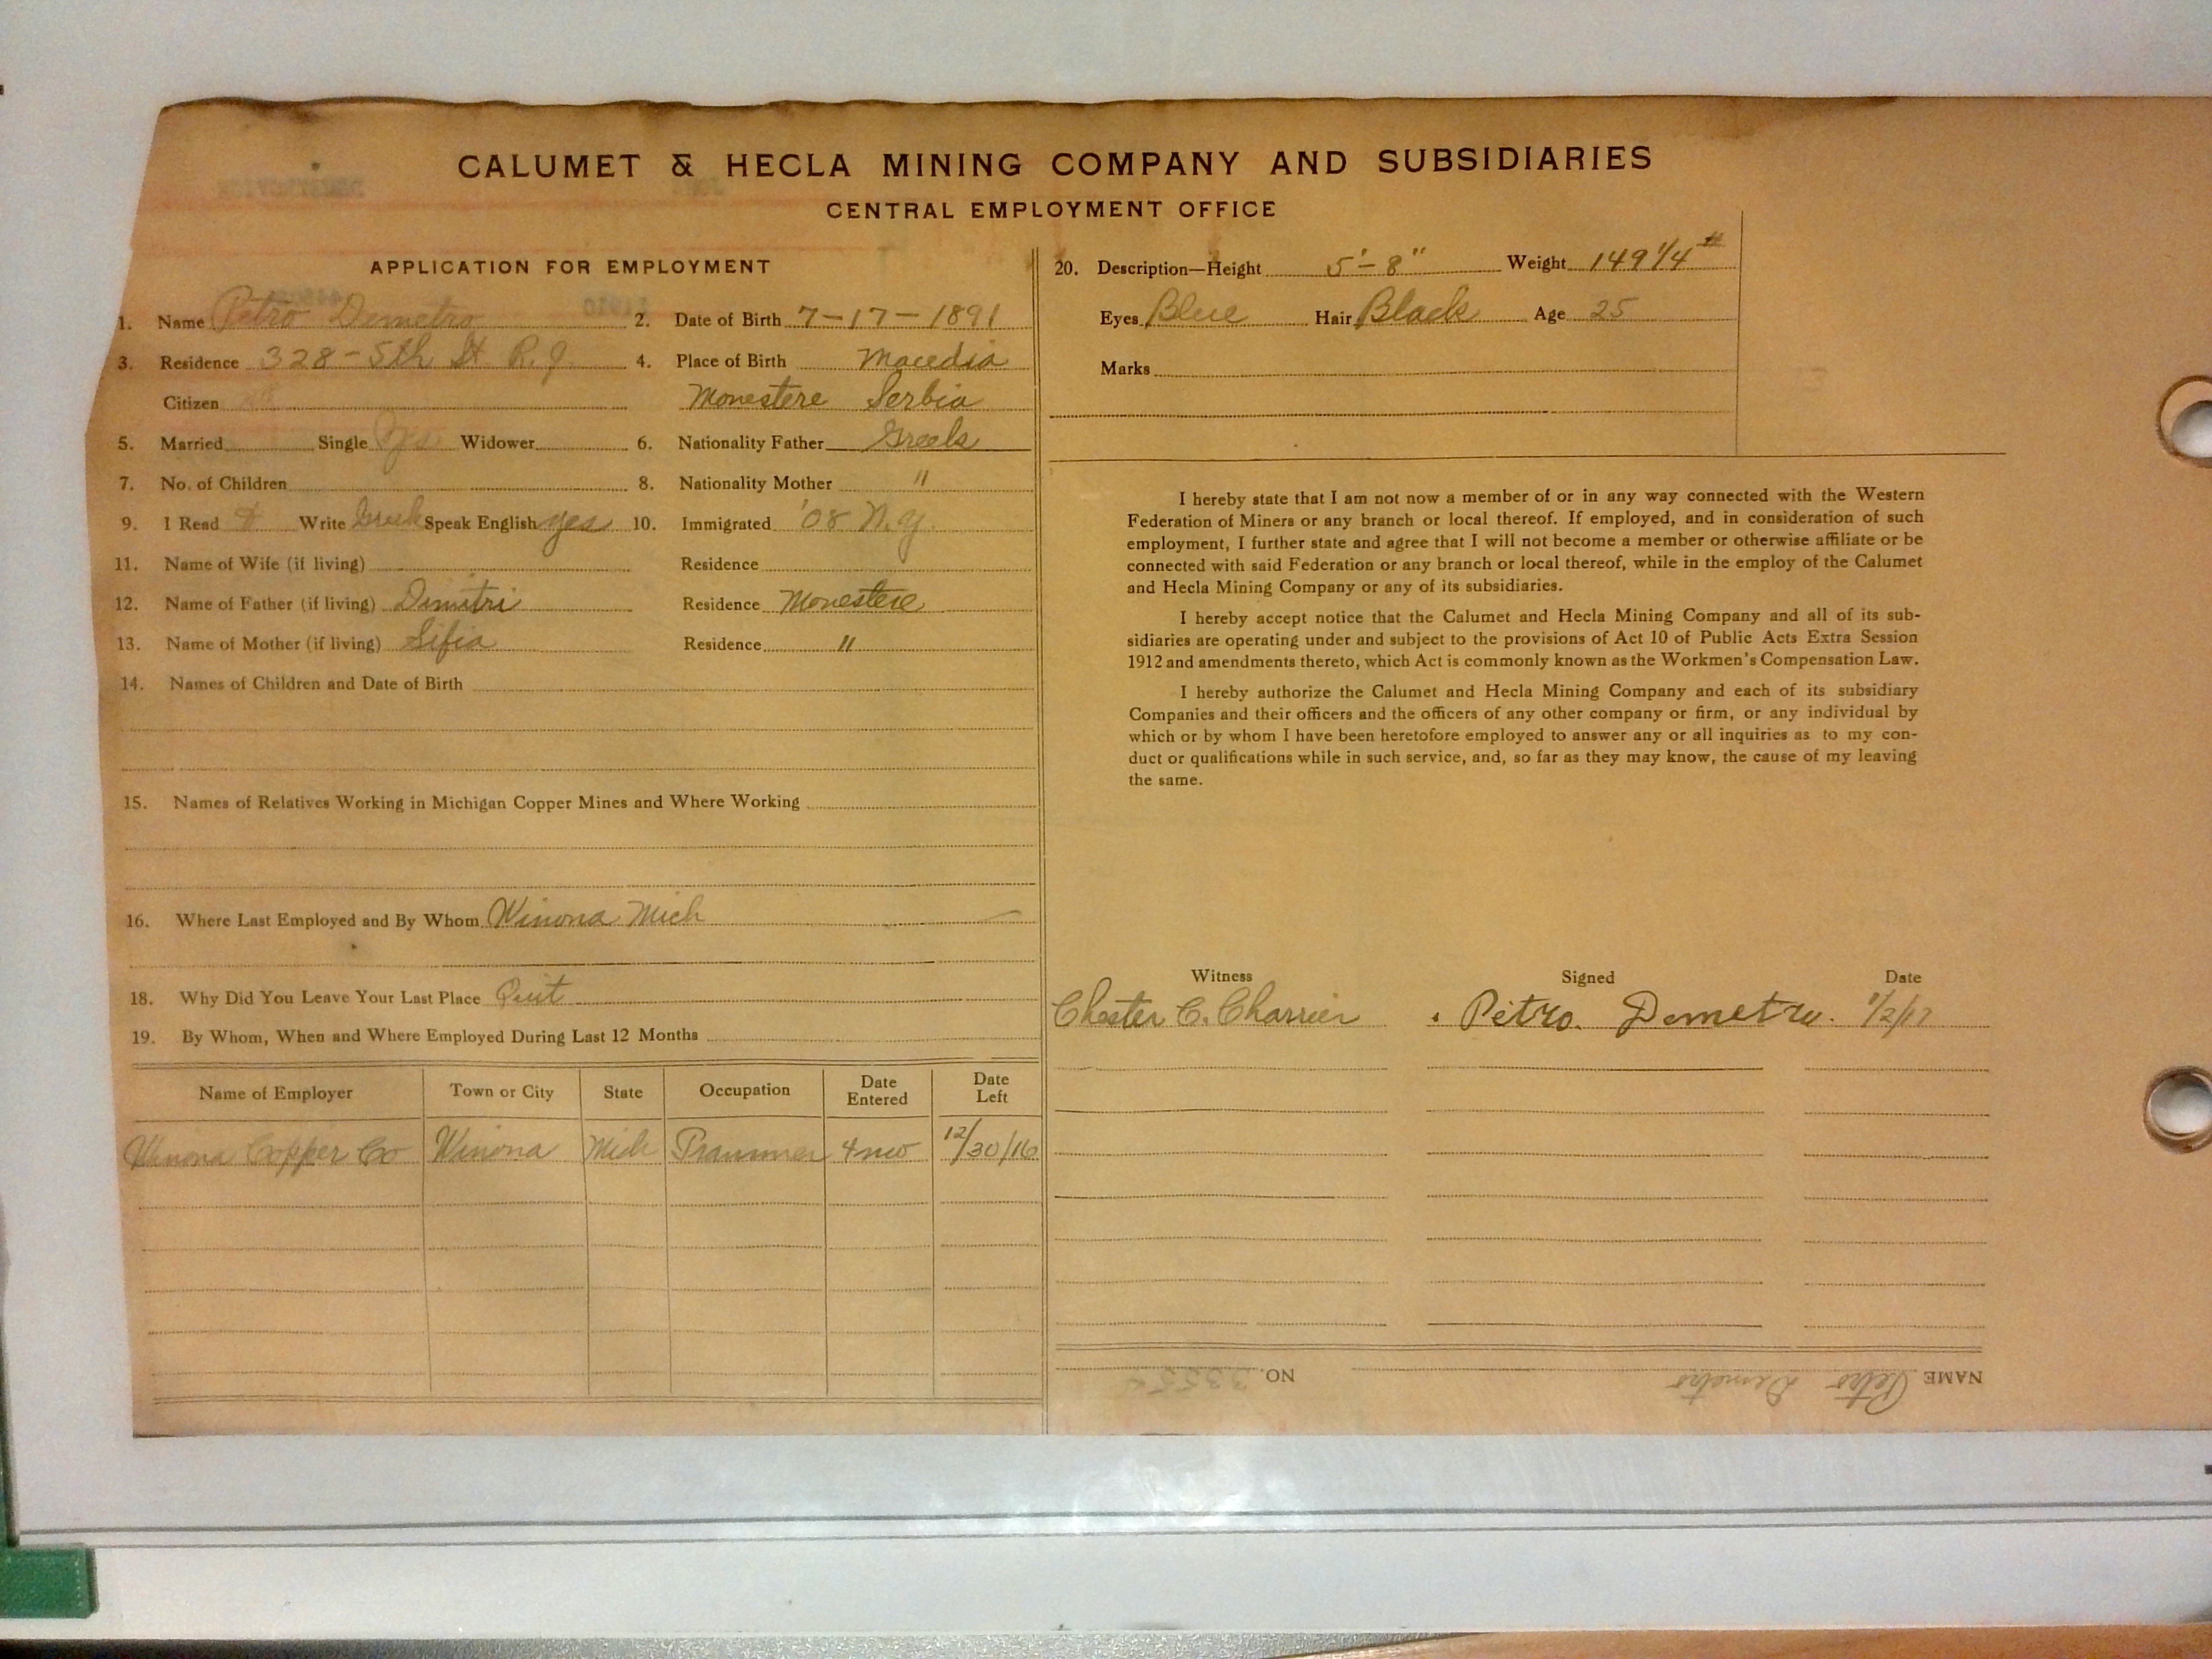 CALUMET & HECLA MINING COMPANY AND SUBSIDIARIES
CENTRAL EMPLOYMENT OFFICE
APPLICATION FOR EMPLOYMENT
1. Name Petro Demetro 2. Date of Birth 7-17-1891
3. Residence 328-5th St R.J. 4. Place of Birth Macedia
Citizen
Monestere Serbia
5. Married Single Yes Widower 6. Nationality Father Greek
7. No. of Children 8. Nationality Mother "
9. I Read & Write Greek Speak English yes 10. Immigrated '08 N.Y.
11. Name of Wife (if living) Residence
12. Name of Father (if living) Dimitri Residence Monestere
13. Name of Mother (if living) Sifia Residence "
14. Names of Children and Date of Birth
15. Names of Relatives Working in Michigan Copper Mines and Where Working
16. Where Last Employed and By Whom Winona Mich
18. Why Did You Leave Your Last Place Quit
19. By Whom, When and Where Employed During Last 12 Months
Name of Employer Town or City State Occupation Date Entered Date Left
Winona Copper Co Winona Mich Trammer 4 mo 12/30/16
20. Description—Height 5'-8" Weight 149 1/4 #
Eyes Blue Hair Black Age 25
Marks
I hereby state that I am not now a member of or in any way connected with the Western
Federation of Miners or any branch or local thereof. If employed, and in consideration of such
employment, I further state and agree that I will not become a member or otherwise affiliate or be
connected with said Federation or any branch or local thereof, while in the employ of the Calumet
and Hecla Mining Company or any of its subsidiaries.
I hereby accept notice that the Calumet and Hecla Mining Company and all of its sub-
sidiaries are operating under and subject to the provisions of Act 10 of Public Acts Extra Session
1912 and amendments thereto, which Act is commonly known as the Workmen's Compensation Law.
I hereby authorize the Calumet and Hecla Mining Company and each of its subsidiary
Companies and their officers and the officers of any other company or firm, or any individual by
which or by whom I have been heretofore employed to answer any or all inquiries as to my con-
duct or qualifications while in such service, and, so far as they may know, the cause of my leaving
the same.
Witness Signed Date
Chester C. Charrier Petro. Demetru. 1/2/17
NAME Petro Demetro NO.